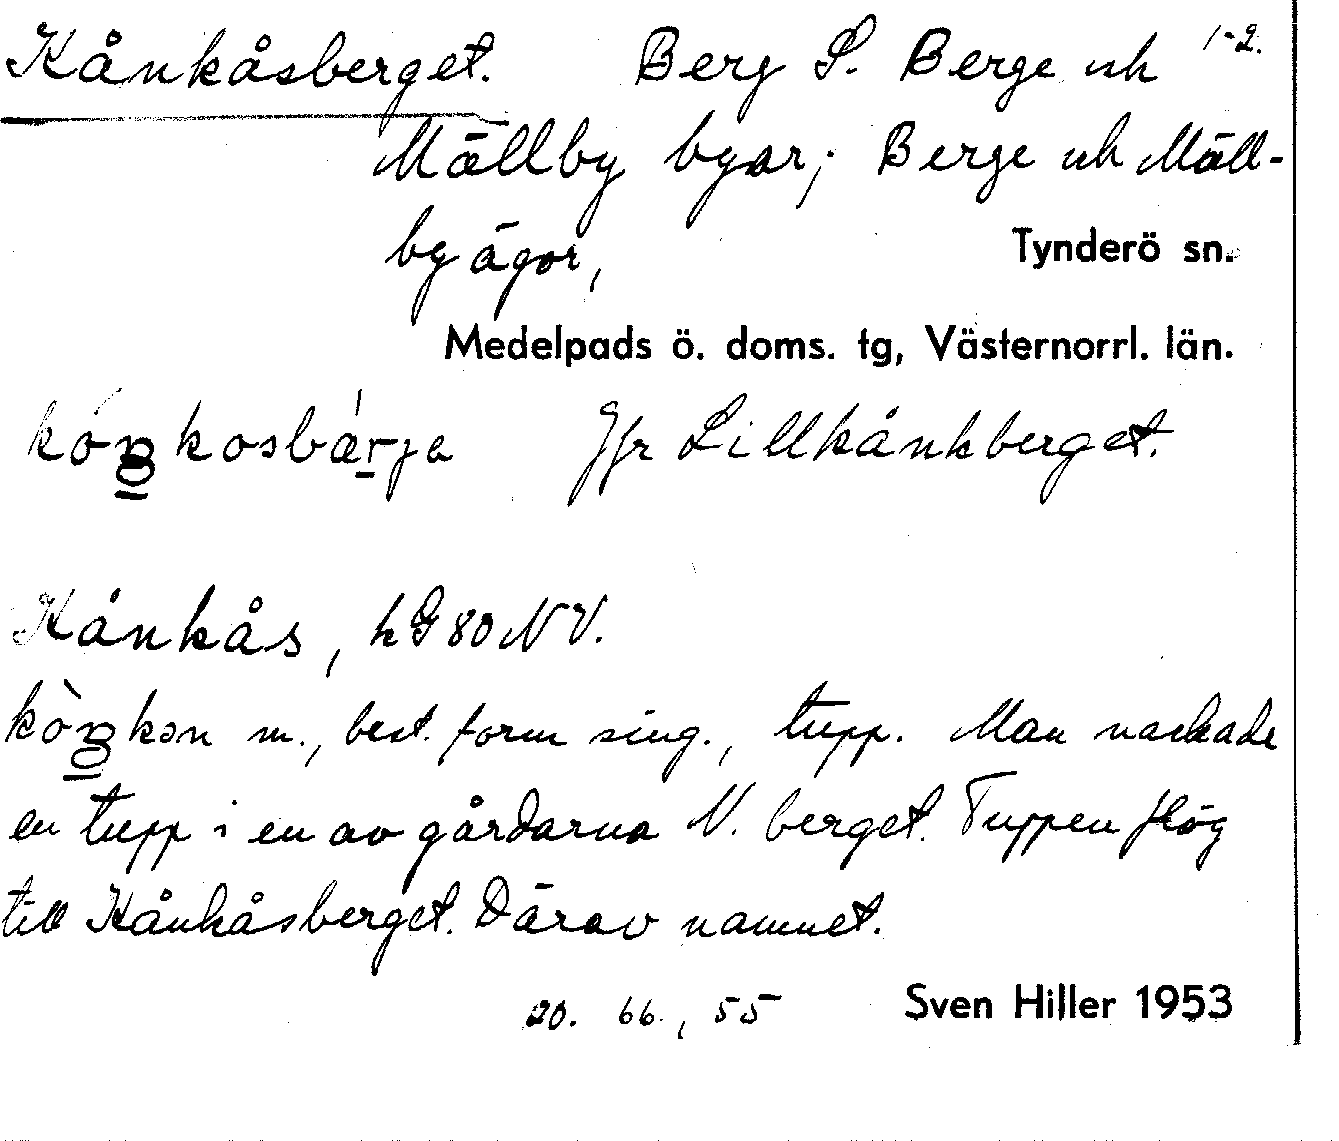 Kånkåsberget. Berg S. Berge och 1-2.
Mällby byar; Berge och Mäll-
by ägor, Tynderö sn.
Medelpads ö. doms. tg, Västernorrl. län.
Jfr Lillkånkberget.
Kånkås, hG80NV.
m., best. form sing., tupp. Man nackade
en tupp i en av gårdarna N. berget. Tuppen flög
till Kånkåsberget. Därav namnet.
20. 66., 55 Sven Hiller 1953